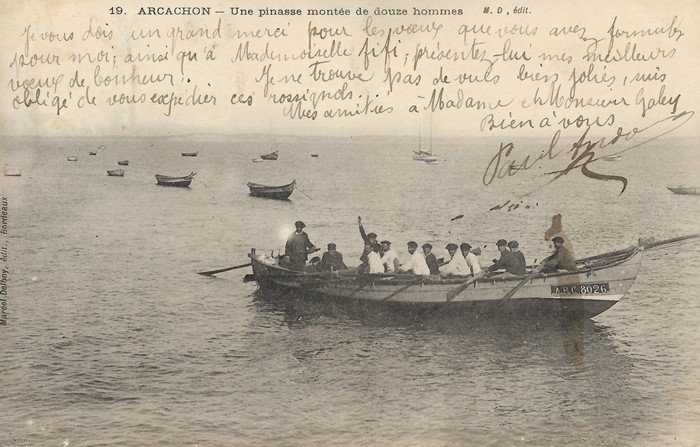 19. ARCACHON – Une pinasse montée de douze hommes M. D, édit.
Je vous dois un grand merci pour les vœux que vous avez formulés
pour moi, ainsi qu'à Mademoiselle fifi, présentez-lui mes meilleurs
vœux de bonheur. Je ne trouve pas de vues bien jolies, suis
obligé de vous expédier ces rossignols.
Mes amitiés à Madame et Monsieur Galey
Bien à vous
Paul
Marcel Delboy, édit., Bordeaux
ARC.8026